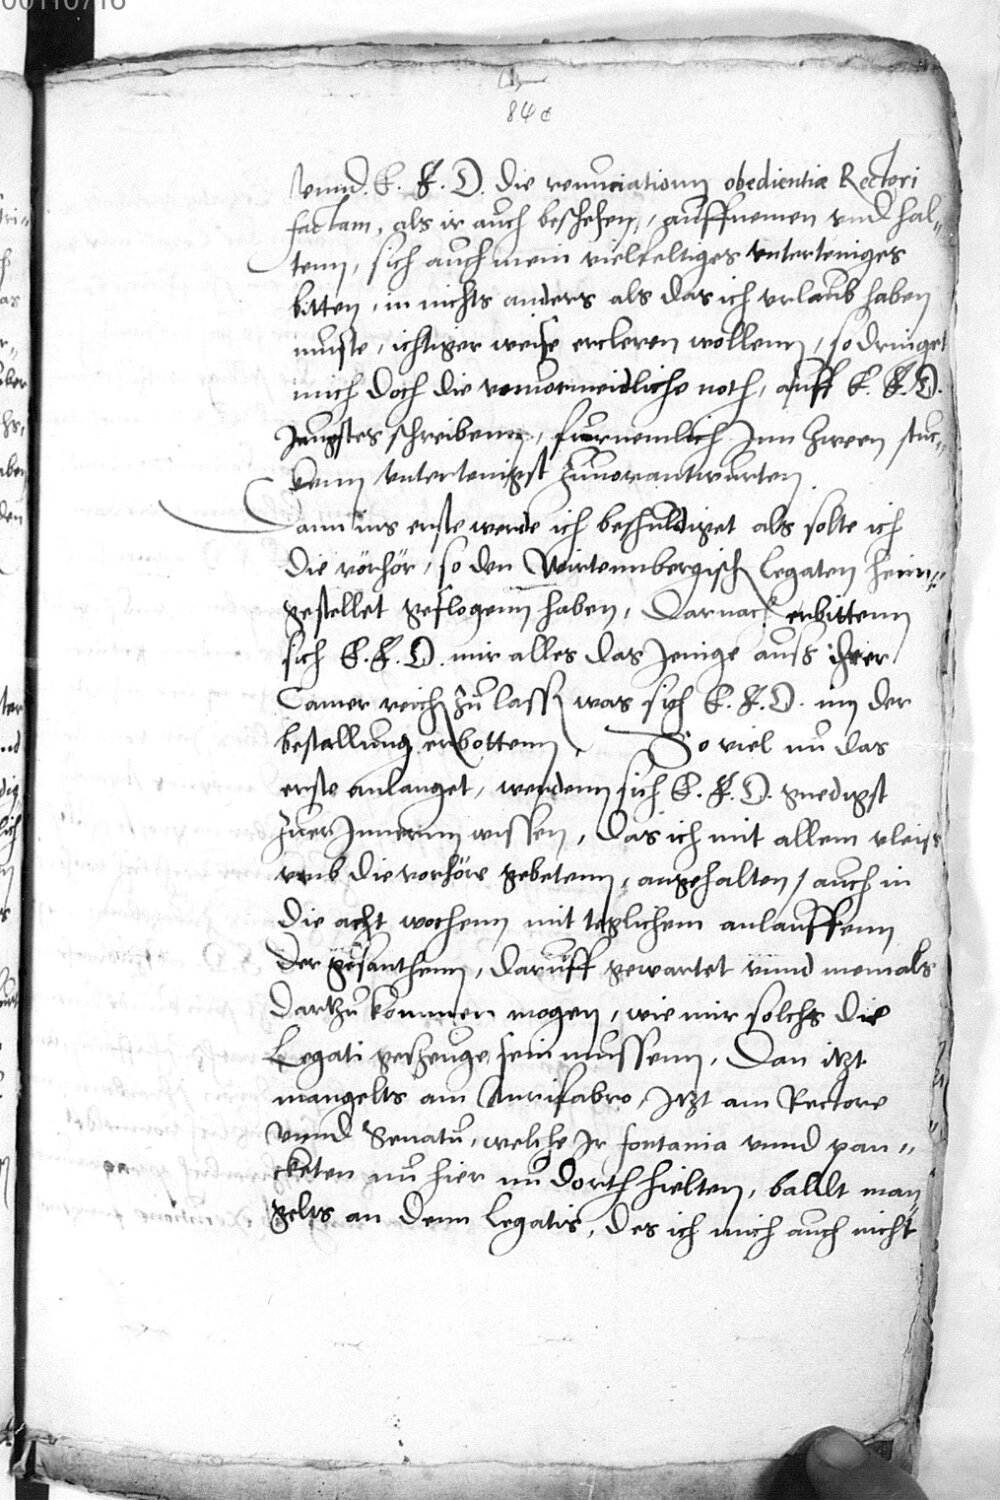 00110716
84c
vnnd. E. F. D. die renuntiationn obedientiæ Rectori
factam, als ir auch beschehen, auffnemen vnd hal-
tenn, sich auch mein vielfeltiges vnterteniges
bitten, in nichts anders als das ich vrlaub haben
muste, ichtiger weise ercleren wollenn, so dringet
mich doch die vnuormeidliche noth, auff E. F. D.
Jungstes schreibenn, furnemlich Inn zween stuc-
kenn vntertenigst zuuorantwurten.
Dann ins erste werde ich beschuldiget als solte ich
die vorhör, so den Wirtennbergisch Legaten heim-
gestellet geflogenn haben, Darnach erbittenn
sich E. F. D. mir alles das Jenige auss ihrer
Camer reich zu lassen was sich E. F. D. inn der
bestallung erbottenn. So viel nu das
erste anlanget, werdenn sich E. F. D. gnedigst
zuer Innernn wissen, das ich mit allem vleiss
vmb die vorhör gebetenn, angehalten, auch in
die acht wochenn mit teglichem anlauffenn
der gesanthenn, daruff gewartet vnnd niemals
dartzu kommen mogen, wie mir solchs die
Legati gezeuge sein mussenn, Dan itzt
mangelts am Aurifabro, Itzt am Rectore
vnnd Senatu, welche Ir fontania vnnd pan-
cketen nu hier nu dorth hielten, balldt man
gelts an denn Legatis, des ich mich auch nicht